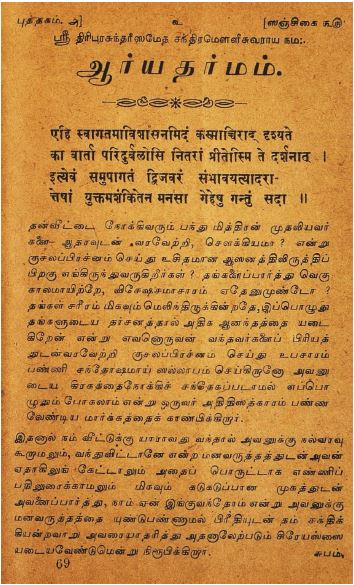 புத்தகம். அ] உ [ஸஞ்சிகை ௧௫
ஸ்ரீ திரிபுரசுந்தரீஸமேத சந்திரமௌளீசுவராய நம:.
ஆர்யதர்மம்.
एहि स्वागतमाविशासनमिदं कस्माच्चिराद् दृश्यते
का वार्ता परिदुर्बलोसि नितरां प्रीतोस्मि ते दर्शनात् ।
इत्येवं समुपागतं द्विजवरं संभावयत्यादरा-
त्तेषां युक्तमशंकितेन मनसा गेहेषु गन्तुं सदा ॥
தன்வீட்டை நோக்கிவரும் பந்து மித்திரன் முதலியவர்
களை ஆதரவுடன் வரவேற்றி, சௌக்கியமா? என்று
குசலப்ரச்னம் செய்து உசிதமான ஆஸனத்திலிருத்திப்
பிறகு எங்கிருந்துவருகிறீர்கள்? தங்களைப்பார்த்து வெகு
காலமாயிற்றே, விசேஷஸமாசாரம் ஏதேனுமுண்டோ?
தங்கள் சரீரம் மிகவும்மெலிந்திருக்கின்றதே, இப்பொழுது
தங்களுடைய தர்சனத்தால் அதிக ஆனந்தத்தை யடை
கிறேன் என்று எவனொருவன் வந்தவர்களைப் பிரியத்
துடன்வரவேற்றி குசலபிரச்னம் செய்து உபசாரம்
பண்ணி சந்தோஷமாய் ஸல்லாபம் செய்கிறானோ அவனு
டைய கிரகத்தைநோக்கிச் சந்தேகப்படாமல் எப்பொ
ழுதும் போகலாம் என்று ஒருவர் அதிதிஸத்காரம் பண்ண
வேண்டிய மார்க்கத்தைக் காண்பிக்கிறார்.
இதனால் நம் வீட்டுக்கு யாராவது வந்தால் அவனுக்கு நல்வரவு
கூறாமலும், வந்துவிட்டானே என்ற மனவருத்தத்துடன்அவன்
ஏதாகிலுங் கேட்டாலும் அதைப் பொருட்டாக எண்ணிப்
பதிலுரைக்காமலும் மிகவும் கடுகடுப்பான முகத்துடன்
அவனைப்பார்த்து, நாம் ஏன் இங்குவந்தோம் என்று அவனுக்கு
மனவருத்தத்தை யுண்டுபண்ணாமல் பிரீதியுடன் தம் சக்திக்
கியன்றவாறு அவரையாதரித்து அதனாலேற்படும் சிரேயஸ்ஸை
யடையவேண்டுமென்று நிரூபிக்கிறார். சுபம்,
69